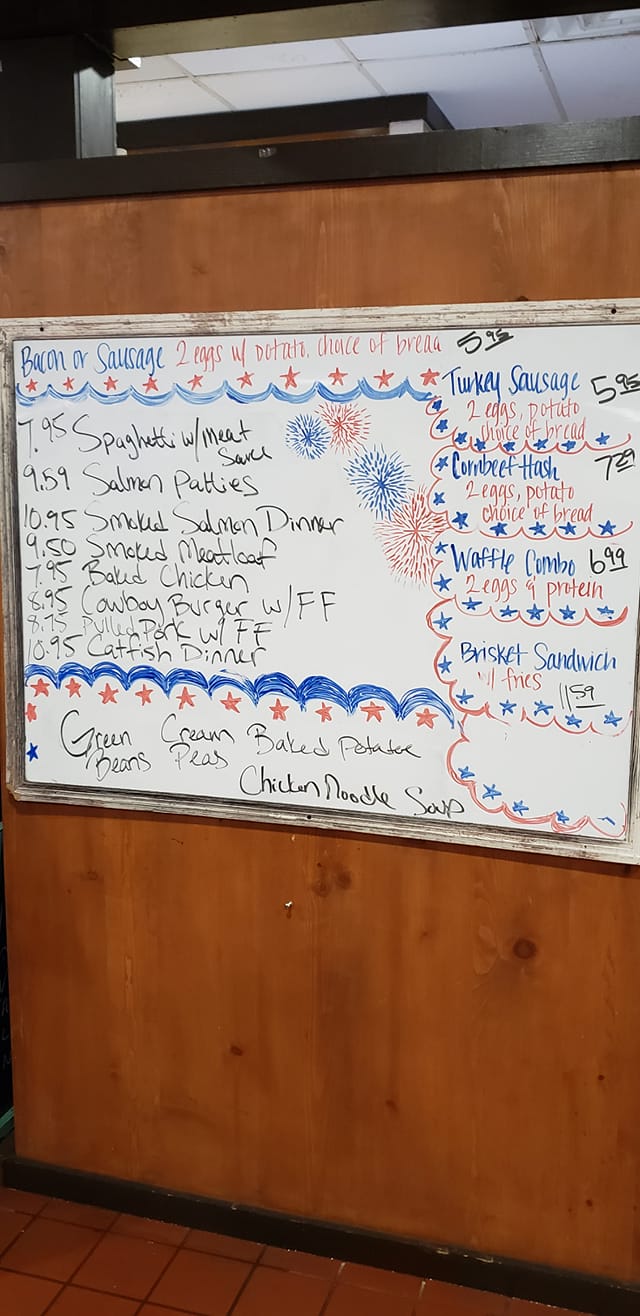 Bacon or Sausage 2 eggs w/ potato, choice of bread 5.95
7.95 Spaghetti w/Meat
Sauce
9.59 Salmon Patties
10.95 Smoked Salmon Dinner
9.50 Smoked Meatloaf
7.95 Baked Chicken
8.95 Cowboy Burger w/FF
8.75 Pulled Pork w/ FF
10.95 Catfish Dinner
Turkey Sausage 5.95
2 eggs, potato
choice of bread
Cornbeef Hash 7.29
2 eggs, potato
choice of bread
Waffle Combo 6.99
2 eggs & protein
Brisket Sandwich
w/ fries
11.59
Green Cream Baked Potatoe
Beans Peas
Chicken Noodle Soup